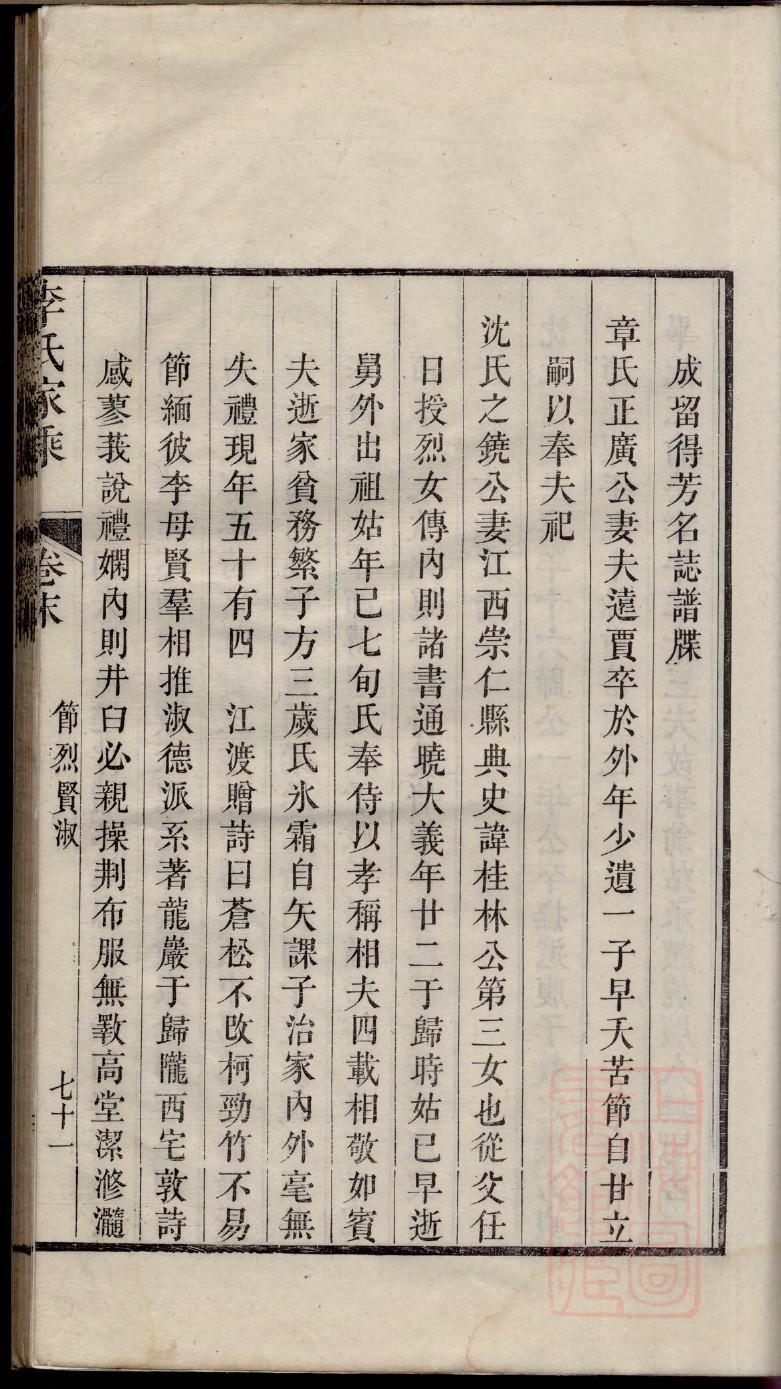 成留得芳名誌譜牒
章氏正廣公妻夫遠賈卒於外年少遺一子早夭苦節自甘立
嗣以奉夫祀
沈氏之鐃公妻江西崇仁縣典史諱桂林公第三女也從父任
日授烈女傳內則諸書通曉大義年廿二于歸時姑已早逝
舅外出祖姑年已七旬氏奉侍以孝稱相夫四載相敬如賓
夫逝家貧務繁子方三歲氏氷霜自矢課子治家內外毫無
失禮現年五十有四　江渡贈詩曰蒼松不改柯勁竹不易
節緬彼李母賢羣相推淑德派系著龍巖于歸隴西宅敦詩
感蓼莪說禮嫻內則井臼必親操荆布服無斁高堂潔滫瀡
李氏家乘
卷末
節烈賢淑
七十一